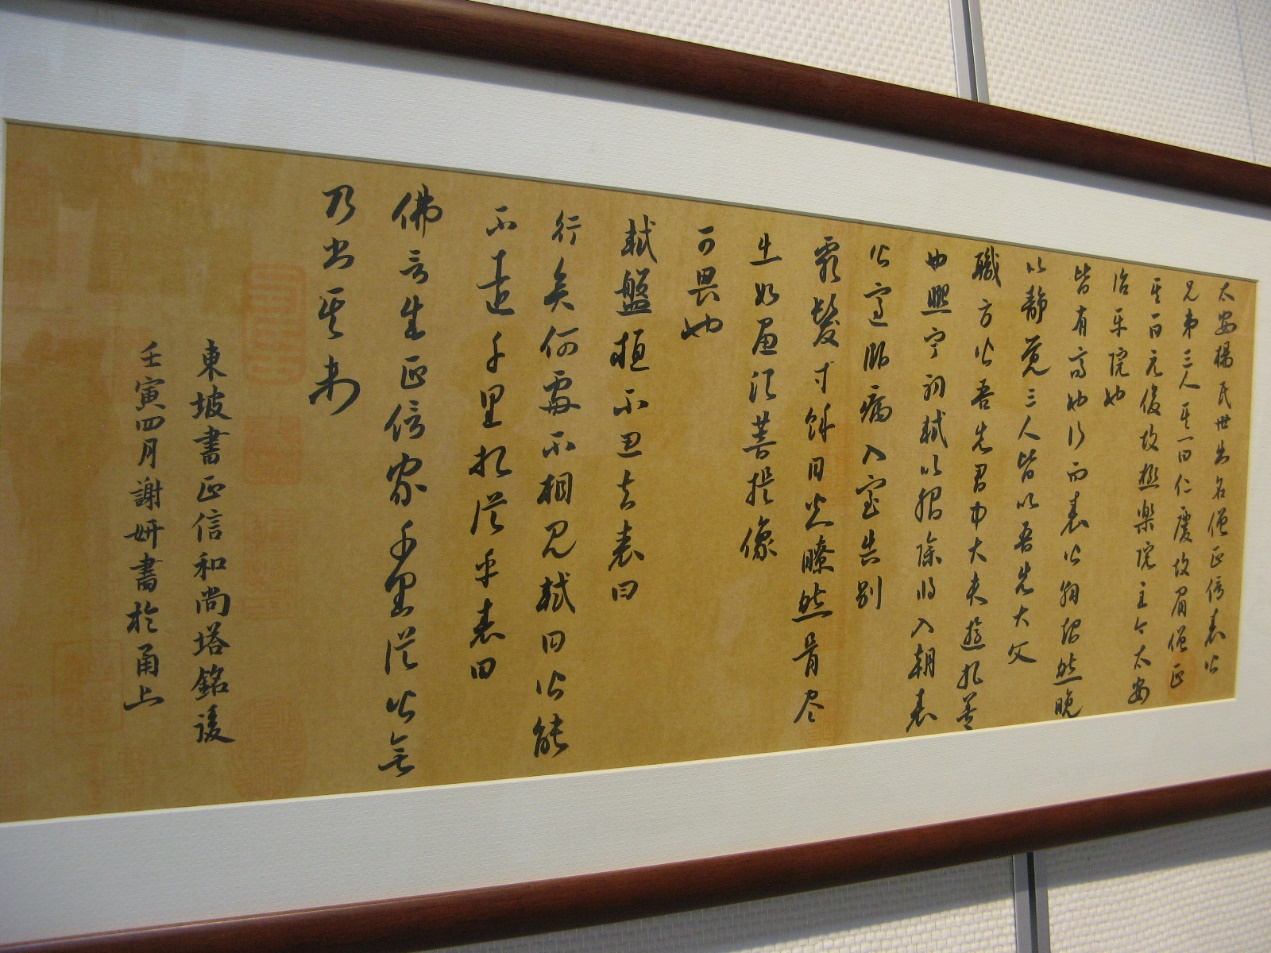 太安楊氏世出名僧正信表公
兄弟三人其一曰仁慶故眉僧正
其一曰元俊故極樂院主今太安
治平院也
皆有高也行而表公狥招然晚
以靜覺三人皆以吾先大父
職方公吾先君中大夫遊相善
也熙寧初軾以服除將入朝表
公適臥病入室告別
霜髮寸餘目光瞭然骨尽
出如画須菩提像
可畏也
軾盤桓不忍去表曰
行矣何處不相見軾曰公能
不遠千里相從乎表曰
佛言生正信家千里從公無
乃出其來
東坡書正信和尚塔銘後
壬寅四月謝妍書於甬上